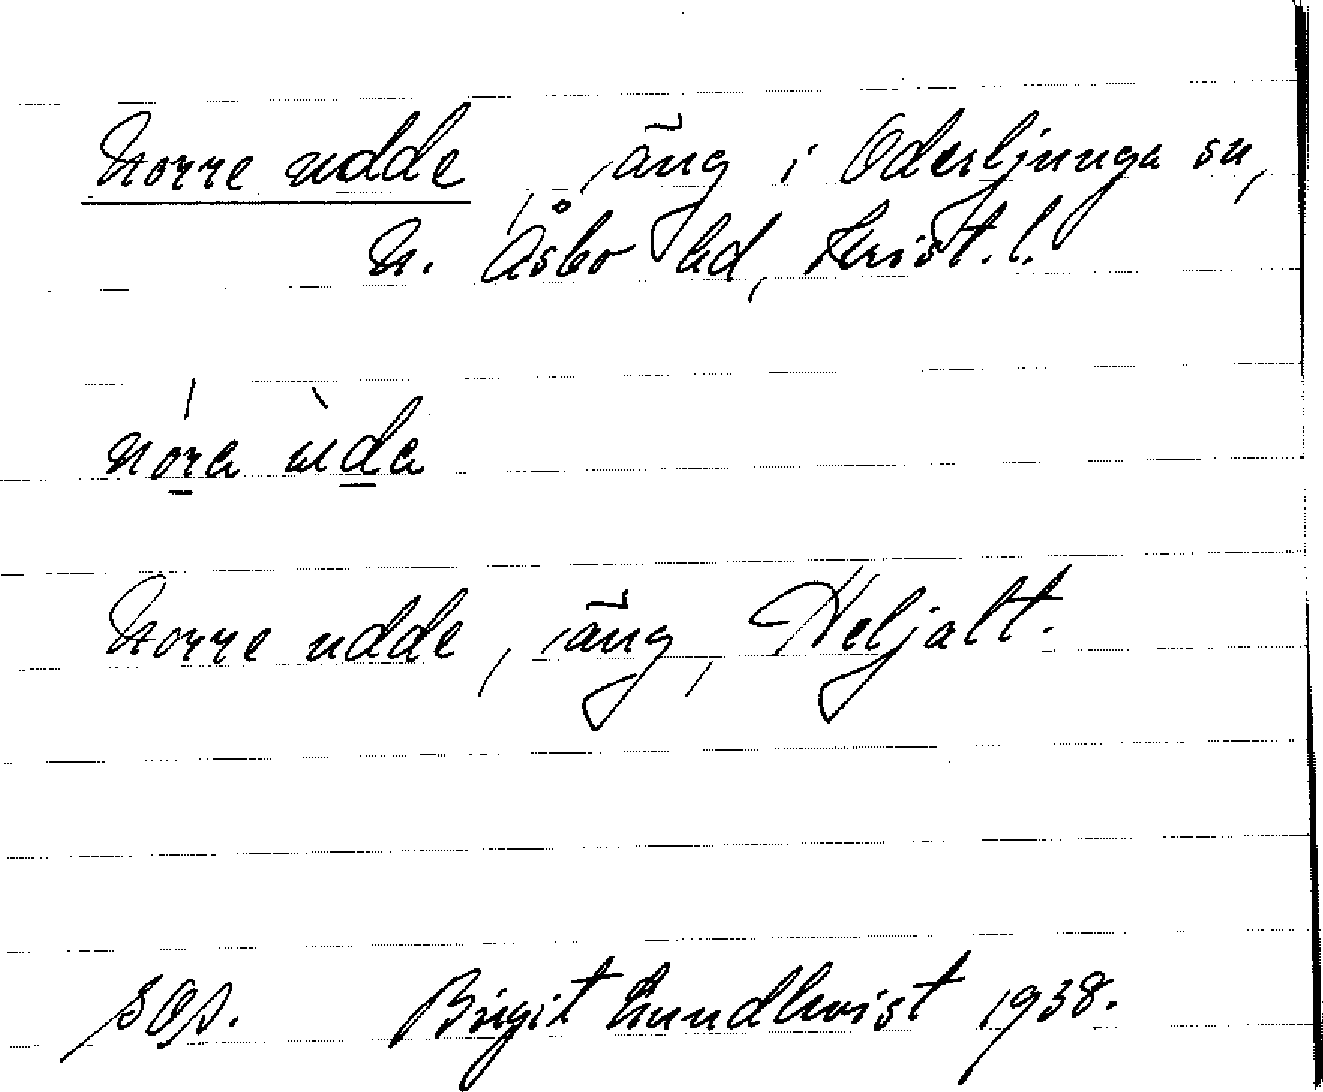 Norre udde, äng i Oderljunga sn,
N. Åsbo hd, Krist. l.
nóra ùda
Norre udde, äng, Heljalt.
SOA. Birgit Lundkvist 1938.